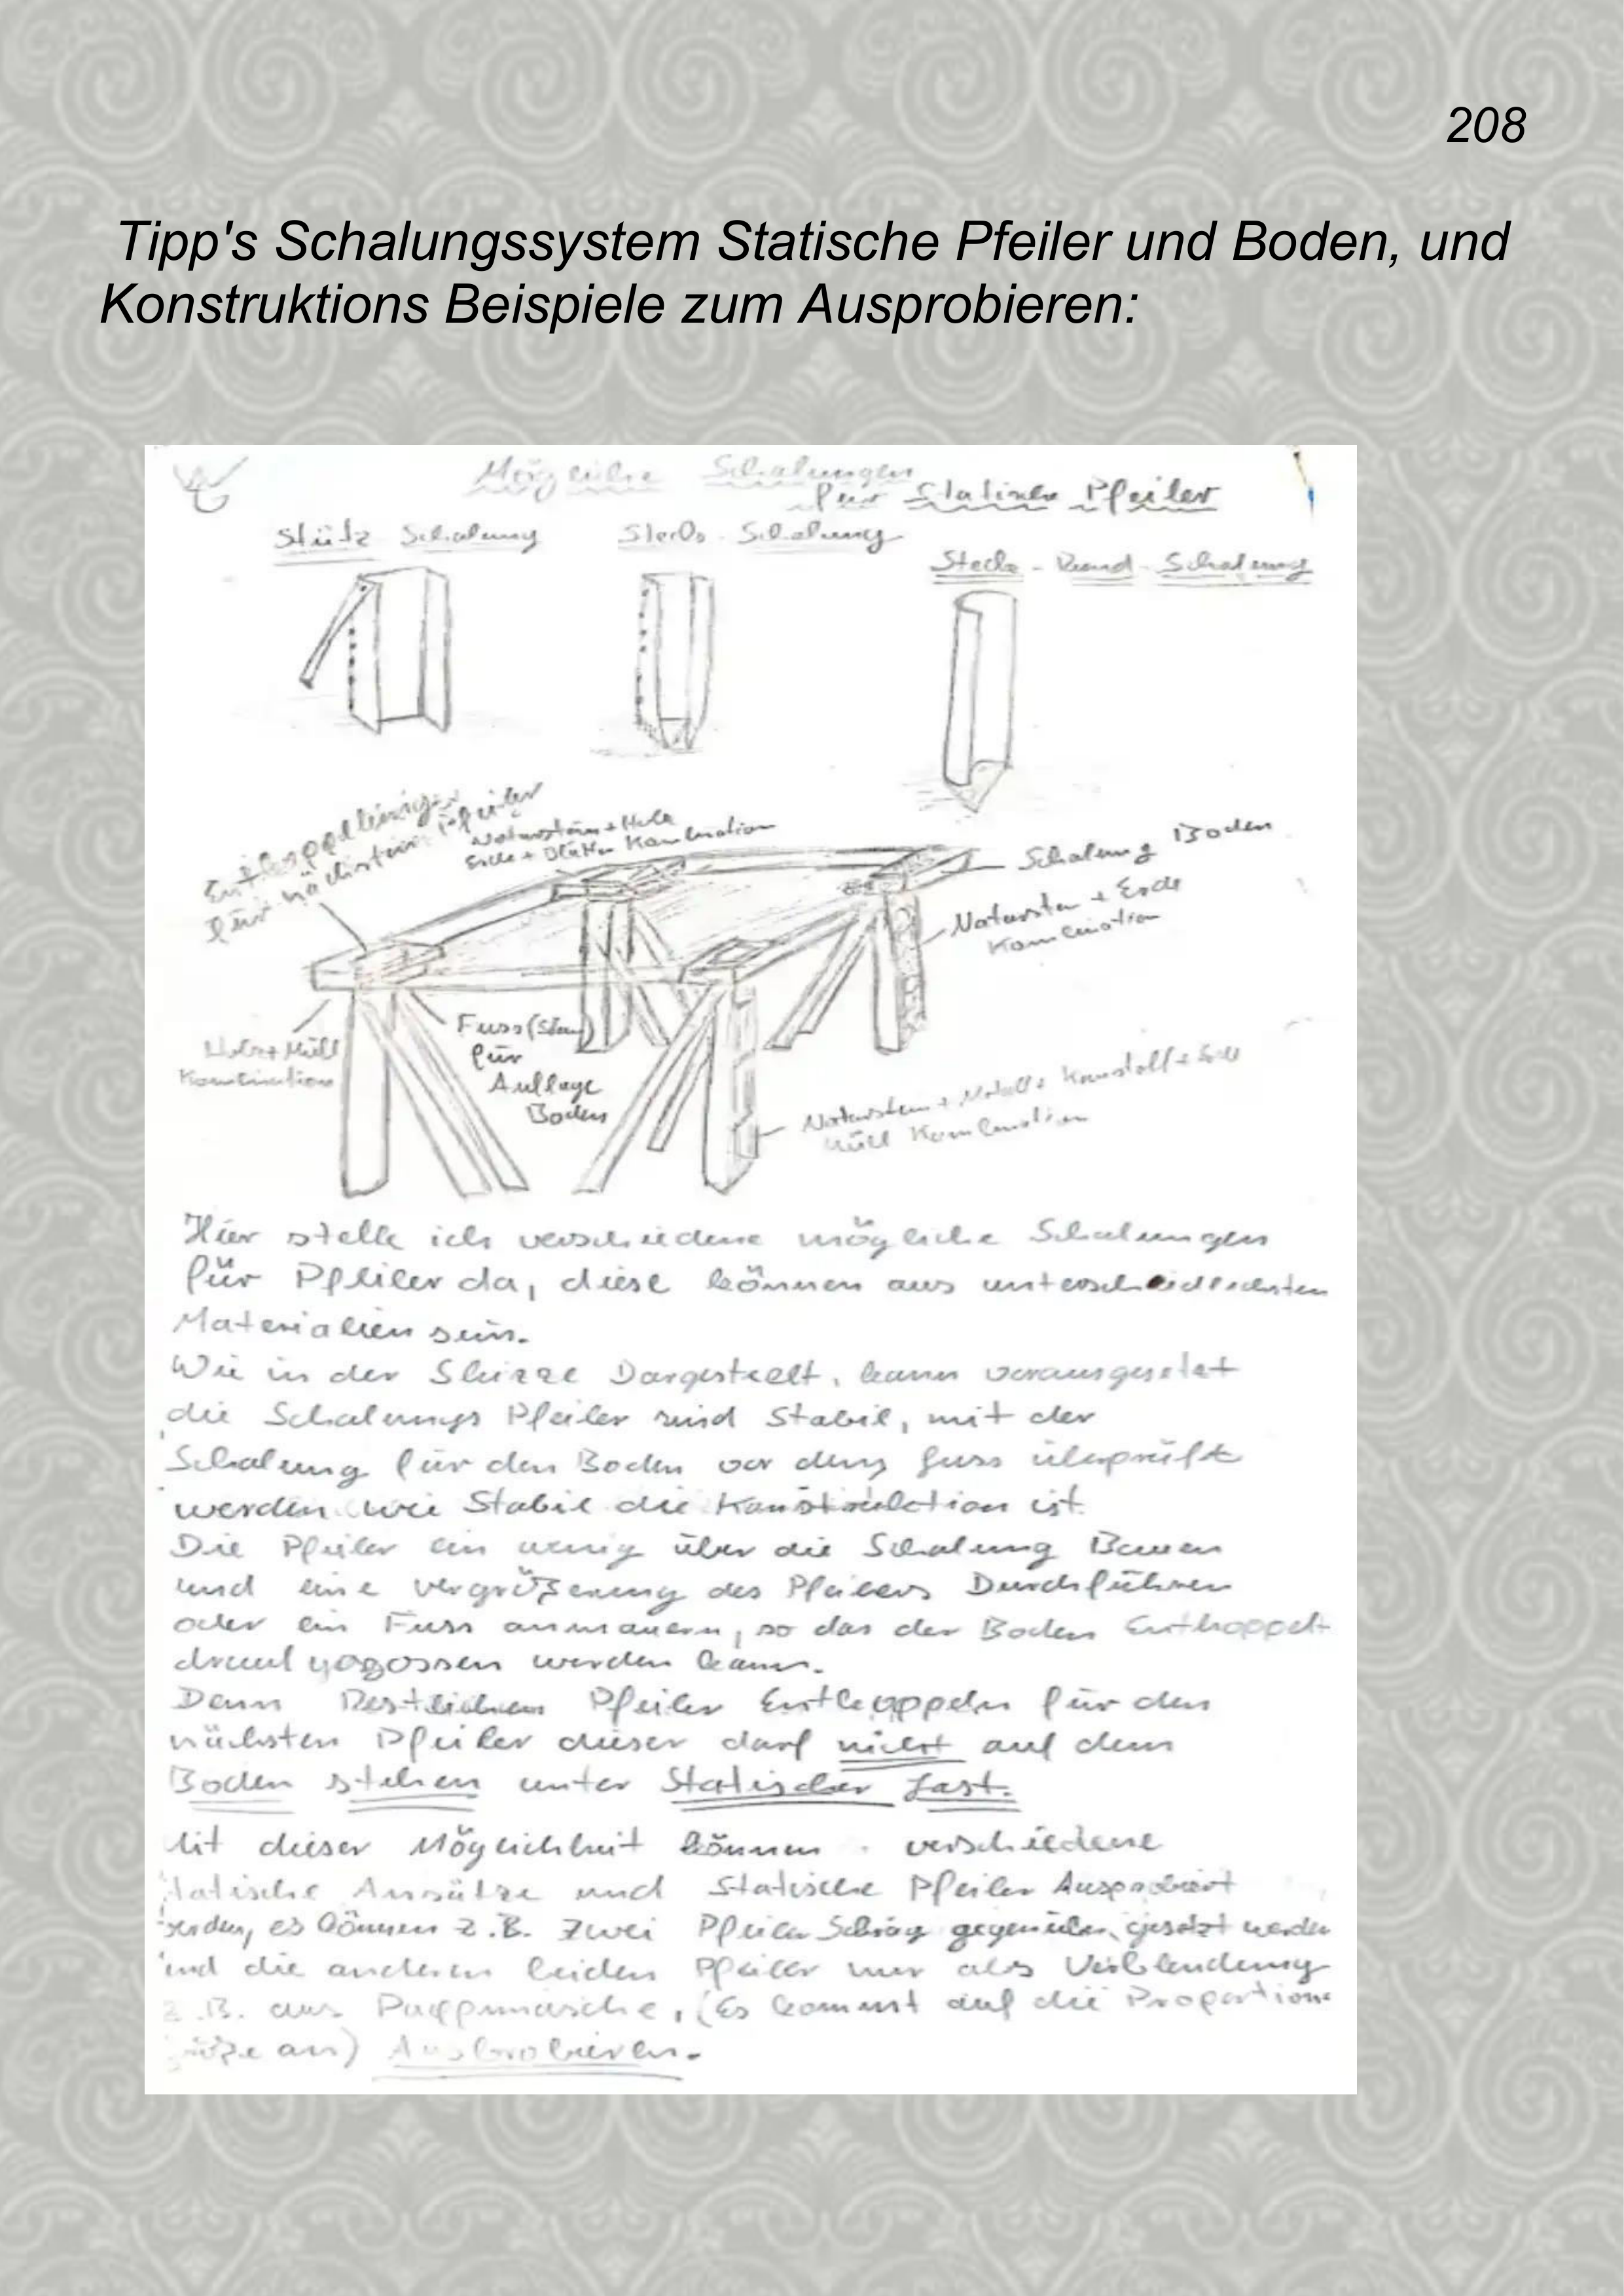 208
Tipp's Schalungssystem Statische Pfeiler und Boden, und
Konstruktions Beispiele zum Ausprobieren:
Mögliche Schalungen
für Statische Pfeiler
Stütz Schalung
Steck - Schalung
Steck - Rund - Schalung
Entkoppelung
für nächsten Pfeiler
Naturstein + Holz
Erde + Blätter Kombination
Schalung Boden
Naturstein + Erde
Kombination
Holz + Müll
Kombination
Fuss (Stein)
für
Auflage
Boden
Naturstein + Metall + Kunstoff + Erde
Müll Kombination
Hier stelle ich verschiedene mögliche Schalungen
für Pfeiler da, diese können aus unterschiedlichsten
Materialien sein.
Wie in der Skizze Dargestellt, kann vorausgesetzt
die Schalungs Pfeiler sind Stabil, mit der
Schalung für den Boden vor dem fuss überprüft
werden wie Stabil die Konstruktion ist.
Die Pfeiler ein wenig über die Schalung Bauen
und eine vergrößerung des Pfeilers Durchführen
oder ein Fuss anmauern, so das der Boden Entkoppelt
drauf gegossen werden kann.
Denn Restlichen Pfeiler Entkoppeln für den
nächsten Pfeiler dieser darf nicht auf dem
Boden stehen unter Statischer Last.
Mit dieser Möglichkeit können verschiedene
statische Ansätze und Statische Pfeiler Ausprobiert
werden, es können z.B. zwei Pfeiler Schräg gegenüber gesetzt werden
und die anderen beiden Pfeiler nur als Verblendung
z.B. aus Pappmasche, (Es kommt auf die Proportions
größe an) Ausprobieren.